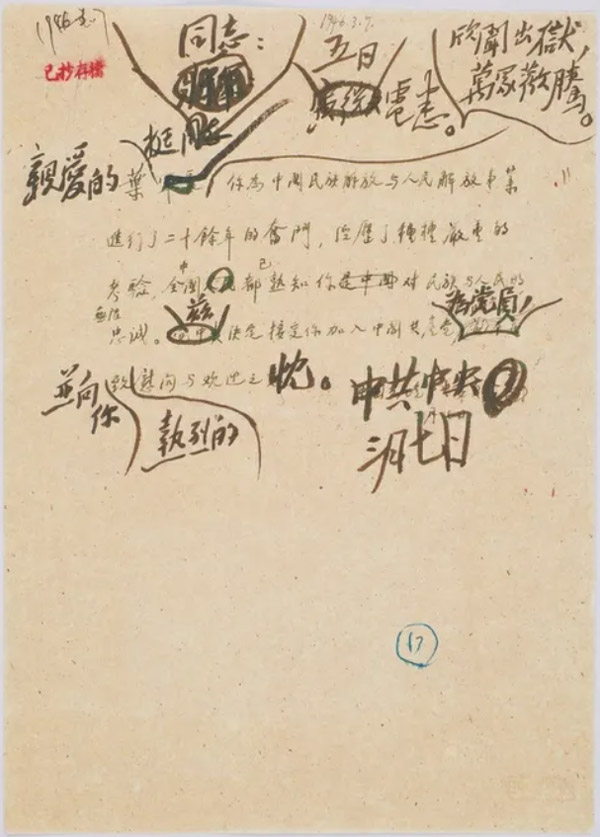 1946.3.7.
已抄存檔
同志：
五日
電悉。
欣聞出獄，
萬眾歡騰。
挺同志
親愛的葉
你為中國民族解放與人民解放事業
進行了二十餘年的奮鬥，經歷了種種嚴重的
考驗，全中國都已熟知你對民族與人民的
無限忠誠。茲決定接受你加入中國共產黨
為黨員，
並向你
致慰問與歡迎之忱。
熱烈的
中共中央
三月七日
17